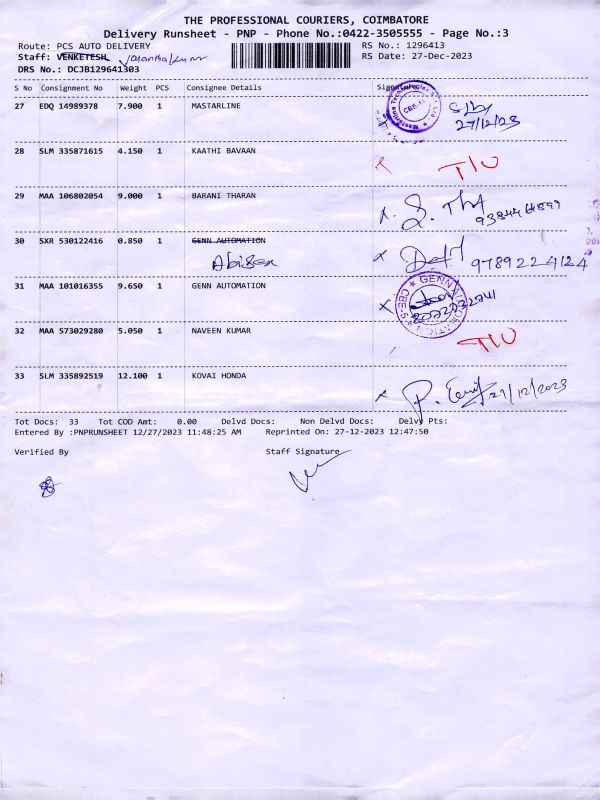 THE PROFESSIONAL COURIERS, COIMBATORE
Delivery Runsheet - PNP - Phone No.:0422-3505555 - Page No.:3
Route: PCS AUTO DELIVERY RS No.: 1296413
Staff: VENKETESH RS Date: 27-Dec-2023
DRS No.: DCJB129641303
S No Consignment No Weight PCS Consignee Details Signature
27 EDQ 14989378 7.900 1 MASTARLINE
27/12/23
28 SLM 335871615 4.150 1 KAATHI BAVAAN
T/U
29 MAA 106802054 9.000 1 BARANI THARAN
30 SXR 530122416 0.850 1 GENN AUTOMATION
9789224124
31 MAA 101016355 9.650 1 GENN AUTOMATION
GENN AUTOMATION CBE-5
32 MAA 573029280 5.050 1 NAVEEN KUMAR
T/U
33 SLM 335892519 12.100 1 KOVAI HONDA
27/12/2023
Tot Docs: 33 Tot COD Amt: 0.00 Delvd Docs: Non Delvd Docs: Delvy Pts:
Entered By :PNPRUNSHEET 12/27/2023 11:48:25 AM Reprinted On: 27-12-2023 12:47:50
Verified By Staff Signature